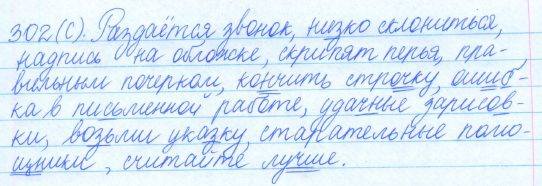 302(С). Раздаётся звонок, низко склониться,
надпись на обложке, скрипят перья, пра-
вильным почерком, кончить строчку, ошиб-
ка в письменной работе, удачные зарисов-
ки, возьми указку, старательные помо-
щники, считайте лучше.